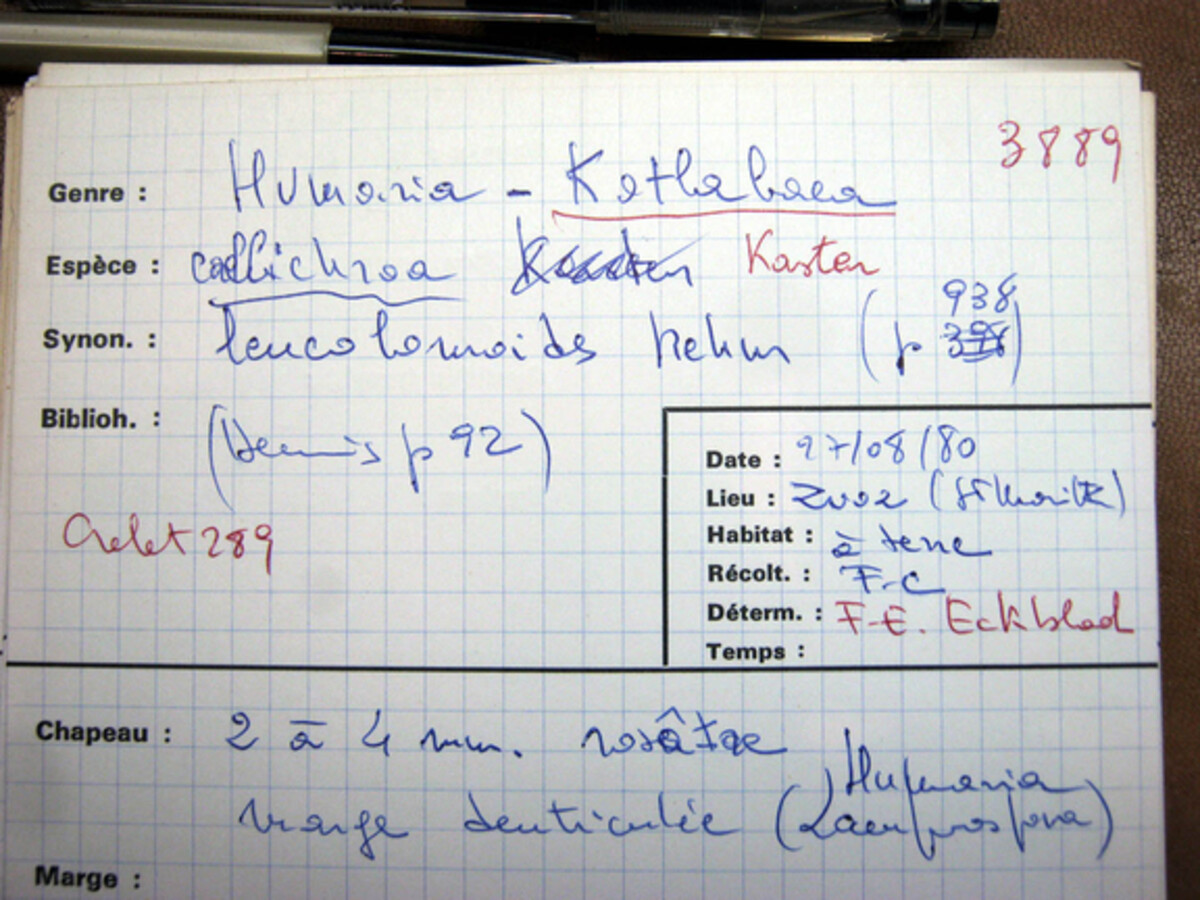 3889
Genre : Humaria - Kotlabaea
Espèce : callichroa Karsten Karsten
Synon. : leucolomoides Rehm (p 398 938)
Biblioh. : (Dennis p 92)
Grelet 289
Date : 27/08/80
Lieu : Zuoz (St Moritz)
Habitat : à terre
Récolt. : F-C
Déterm. : F-E. Eckblad
Temps :
Chapeau : 2 à 4 mm. rosâtre
marge denticulée (Humaria
Lamprospora)
Marge :